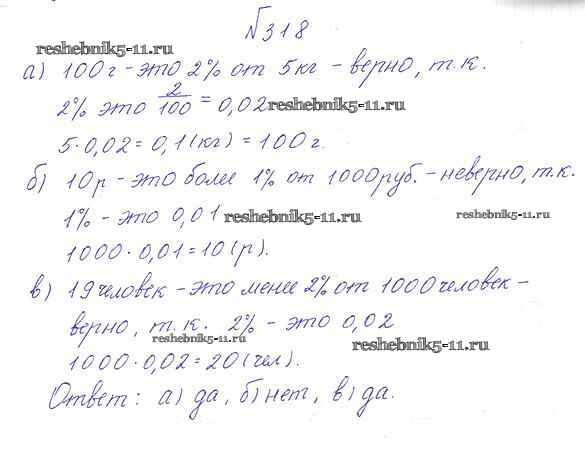 №318
reshebnik5-11.ru
а) 100г - это 2% от 5кг - верно, т.к.
2% это 2/100 = 0,02 reshebnik5-11.ru
5·0,02 = 0,1(кг) = 100г.
б) 10р - это более 1% от 1000руб. - неверно, т.к.
1% - это 0,01 reshebnik5-11.ru reshebnik5-11.ru
1000·0,01 = 10(р).
в) 19человек - это менее 2% от 1000человек -
верно, т.к. 2% - это 0,02
reshebnik5-11.ru reshebnik5-11.ru
1000·0,02 = 20(чел).
Ответ: а) да, б) нет, в) да.